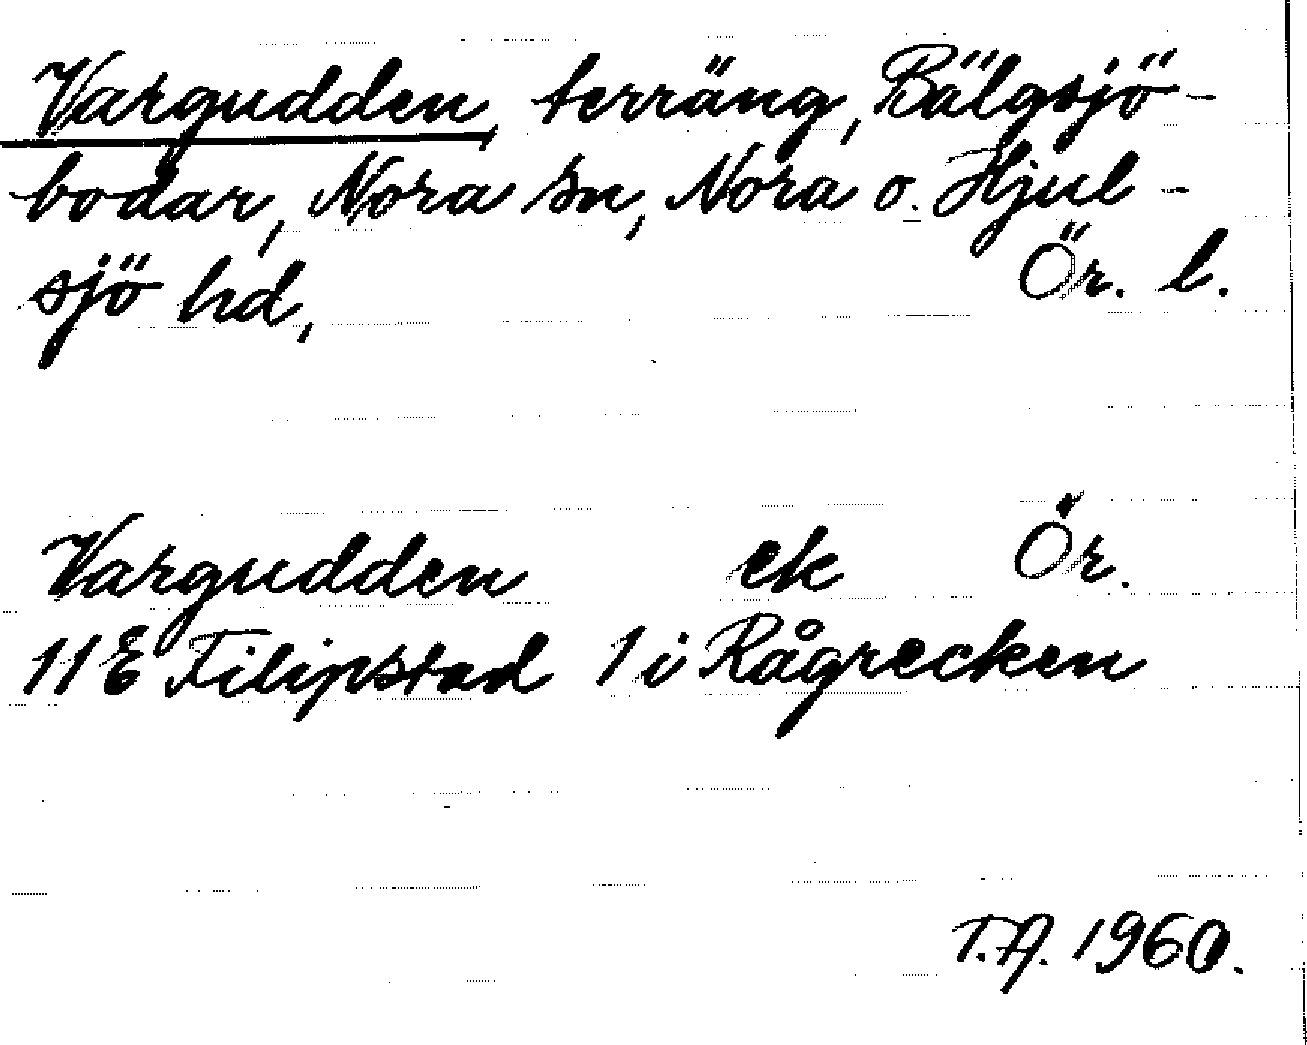 Vargudden, terräng, Bälgsjö-
bodar, Nora sn, Nora o. Hjul-
sjö hd, Ör. l.
Vargudden ek Ör.
11E Filipstad 1i Rågrecken
T.A. 1960.